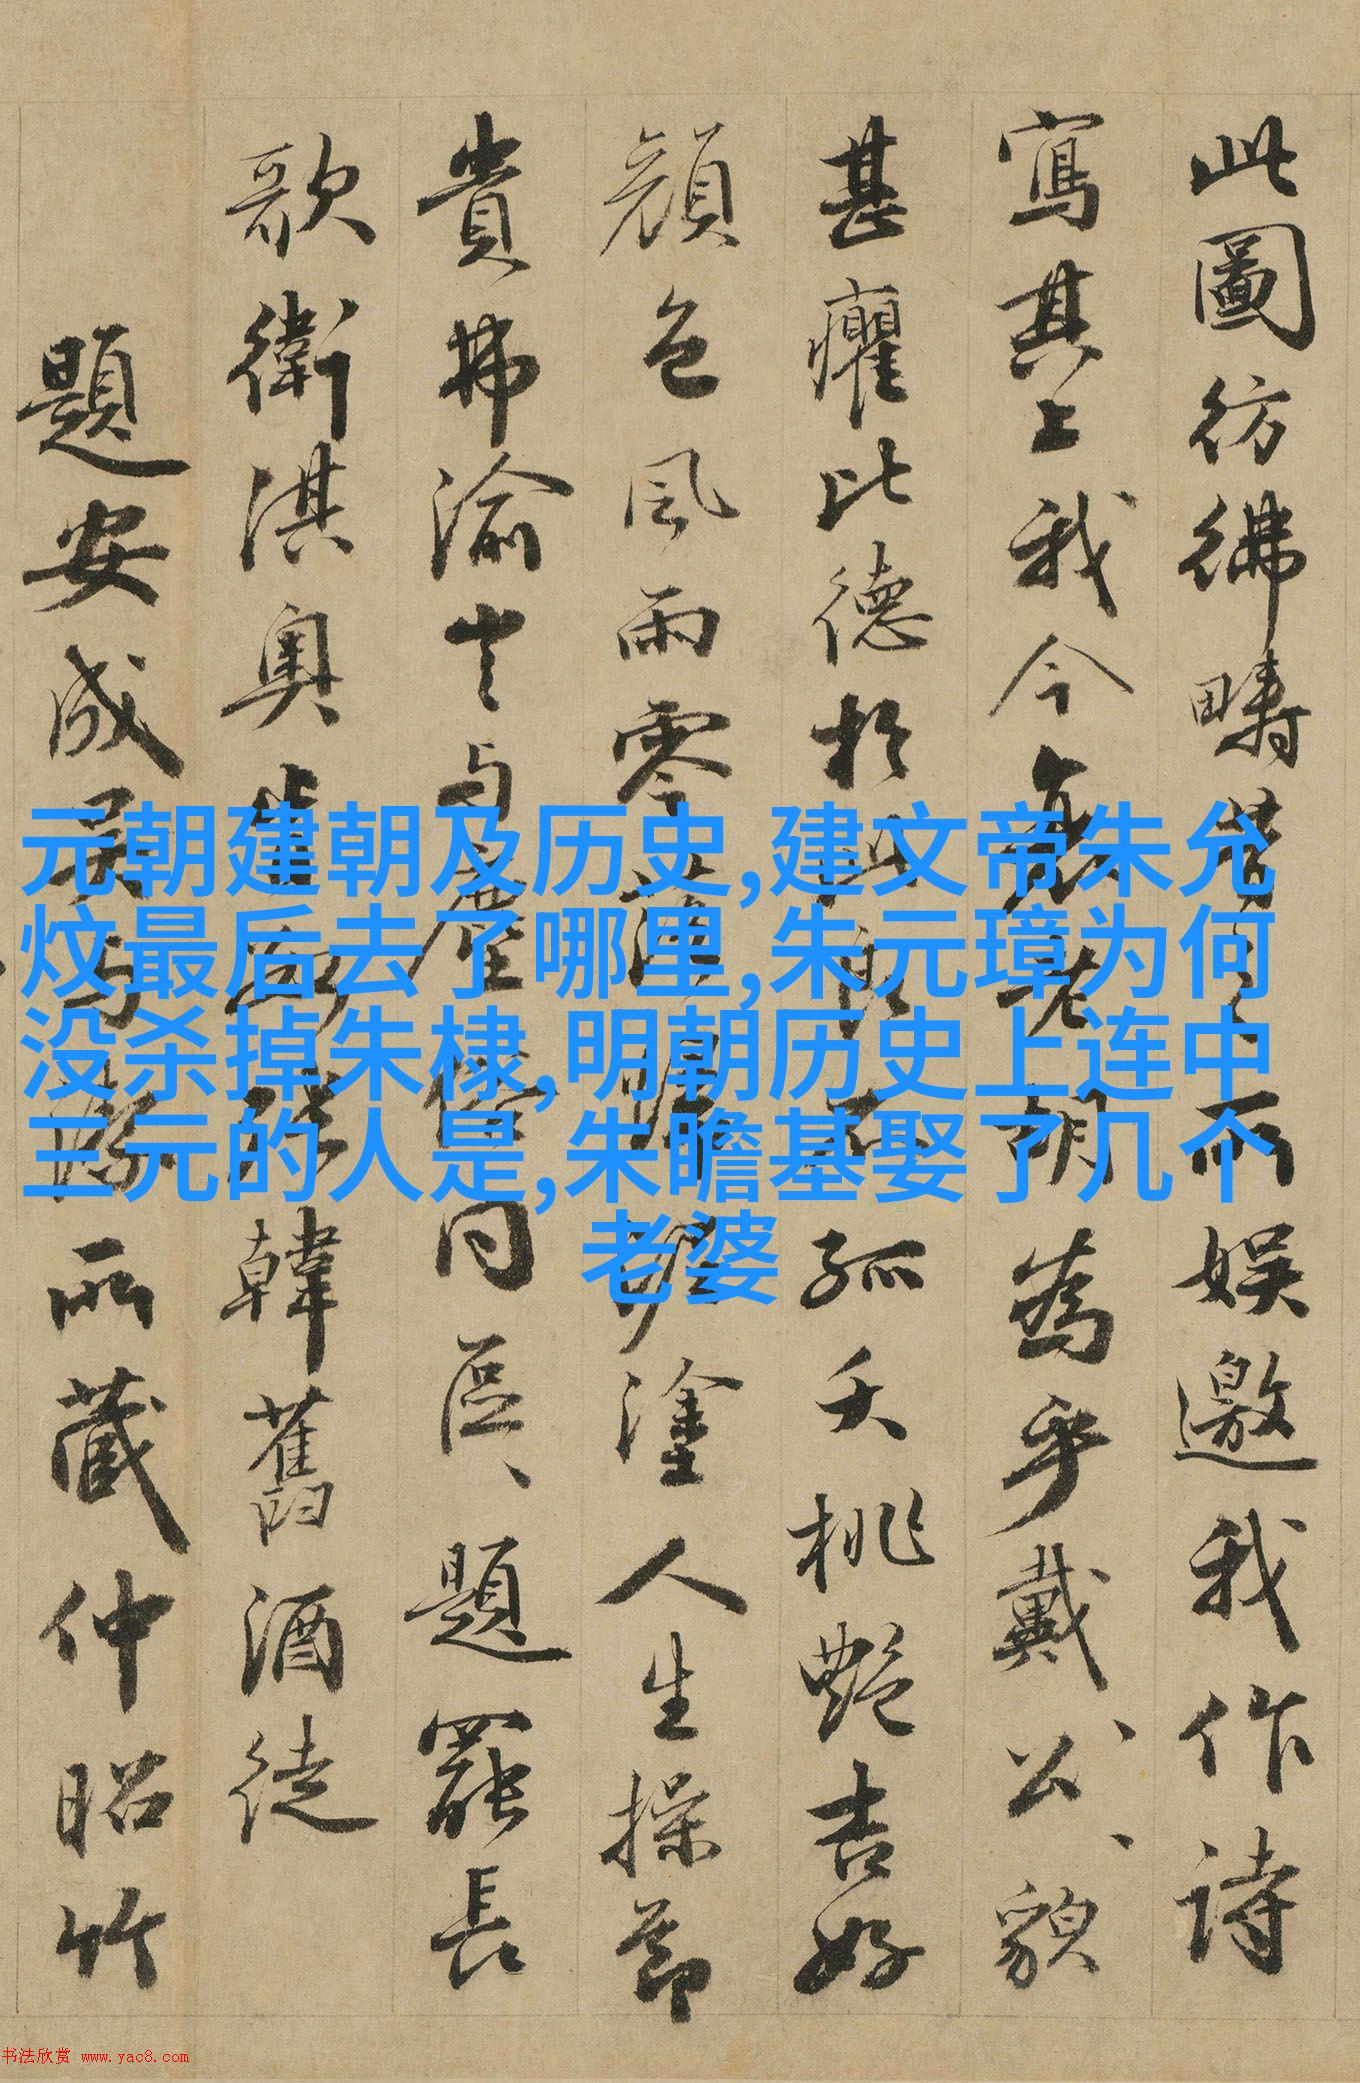 此圖彷彿疇昔而娛邀我作詩
寫其上我今衰老胡為乎戴公公貌
甚癯比德於孤夭桃艷吉好
顏色風雨零落塗人生操節
貴弗渝與塵同區區題罷長
歌衛淇奧韓舊酒徒
題安成所藏仲昭竹
元朝建朝及历史,建文帝朱允
炆最后去了哪里,朱元璋为何
没杀掉朱棣,明朝历史上连中
三元的人是,朱瞻基娶了几个
老婆
书法欣赏 www.yac8.com